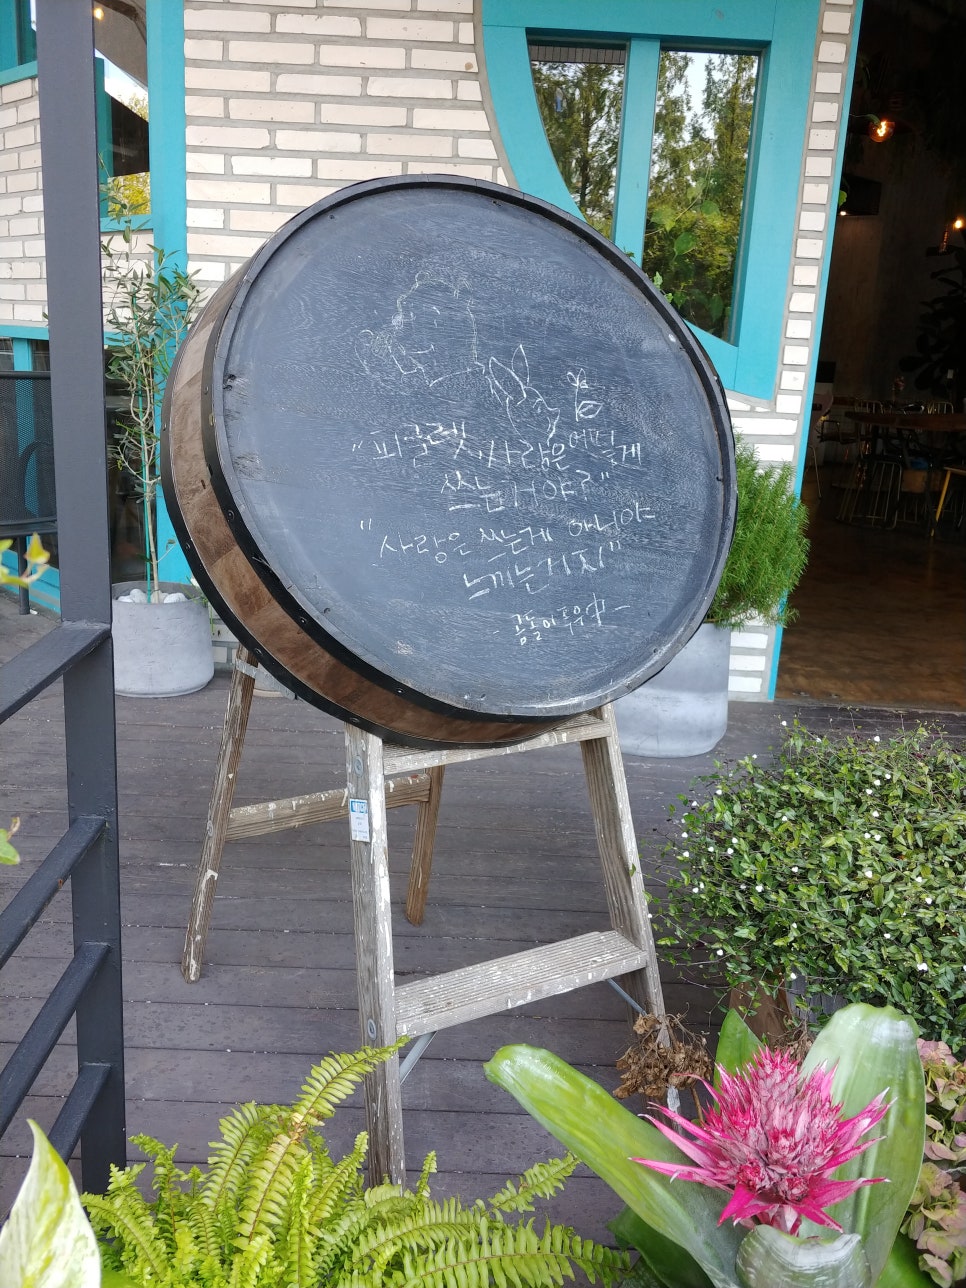 "피글렛, 사랑은 어떻게
쓰는거야?"
"사랑은 쓰는게 아니야
느끼는거지"
- 곰돌이 푸우 中 -